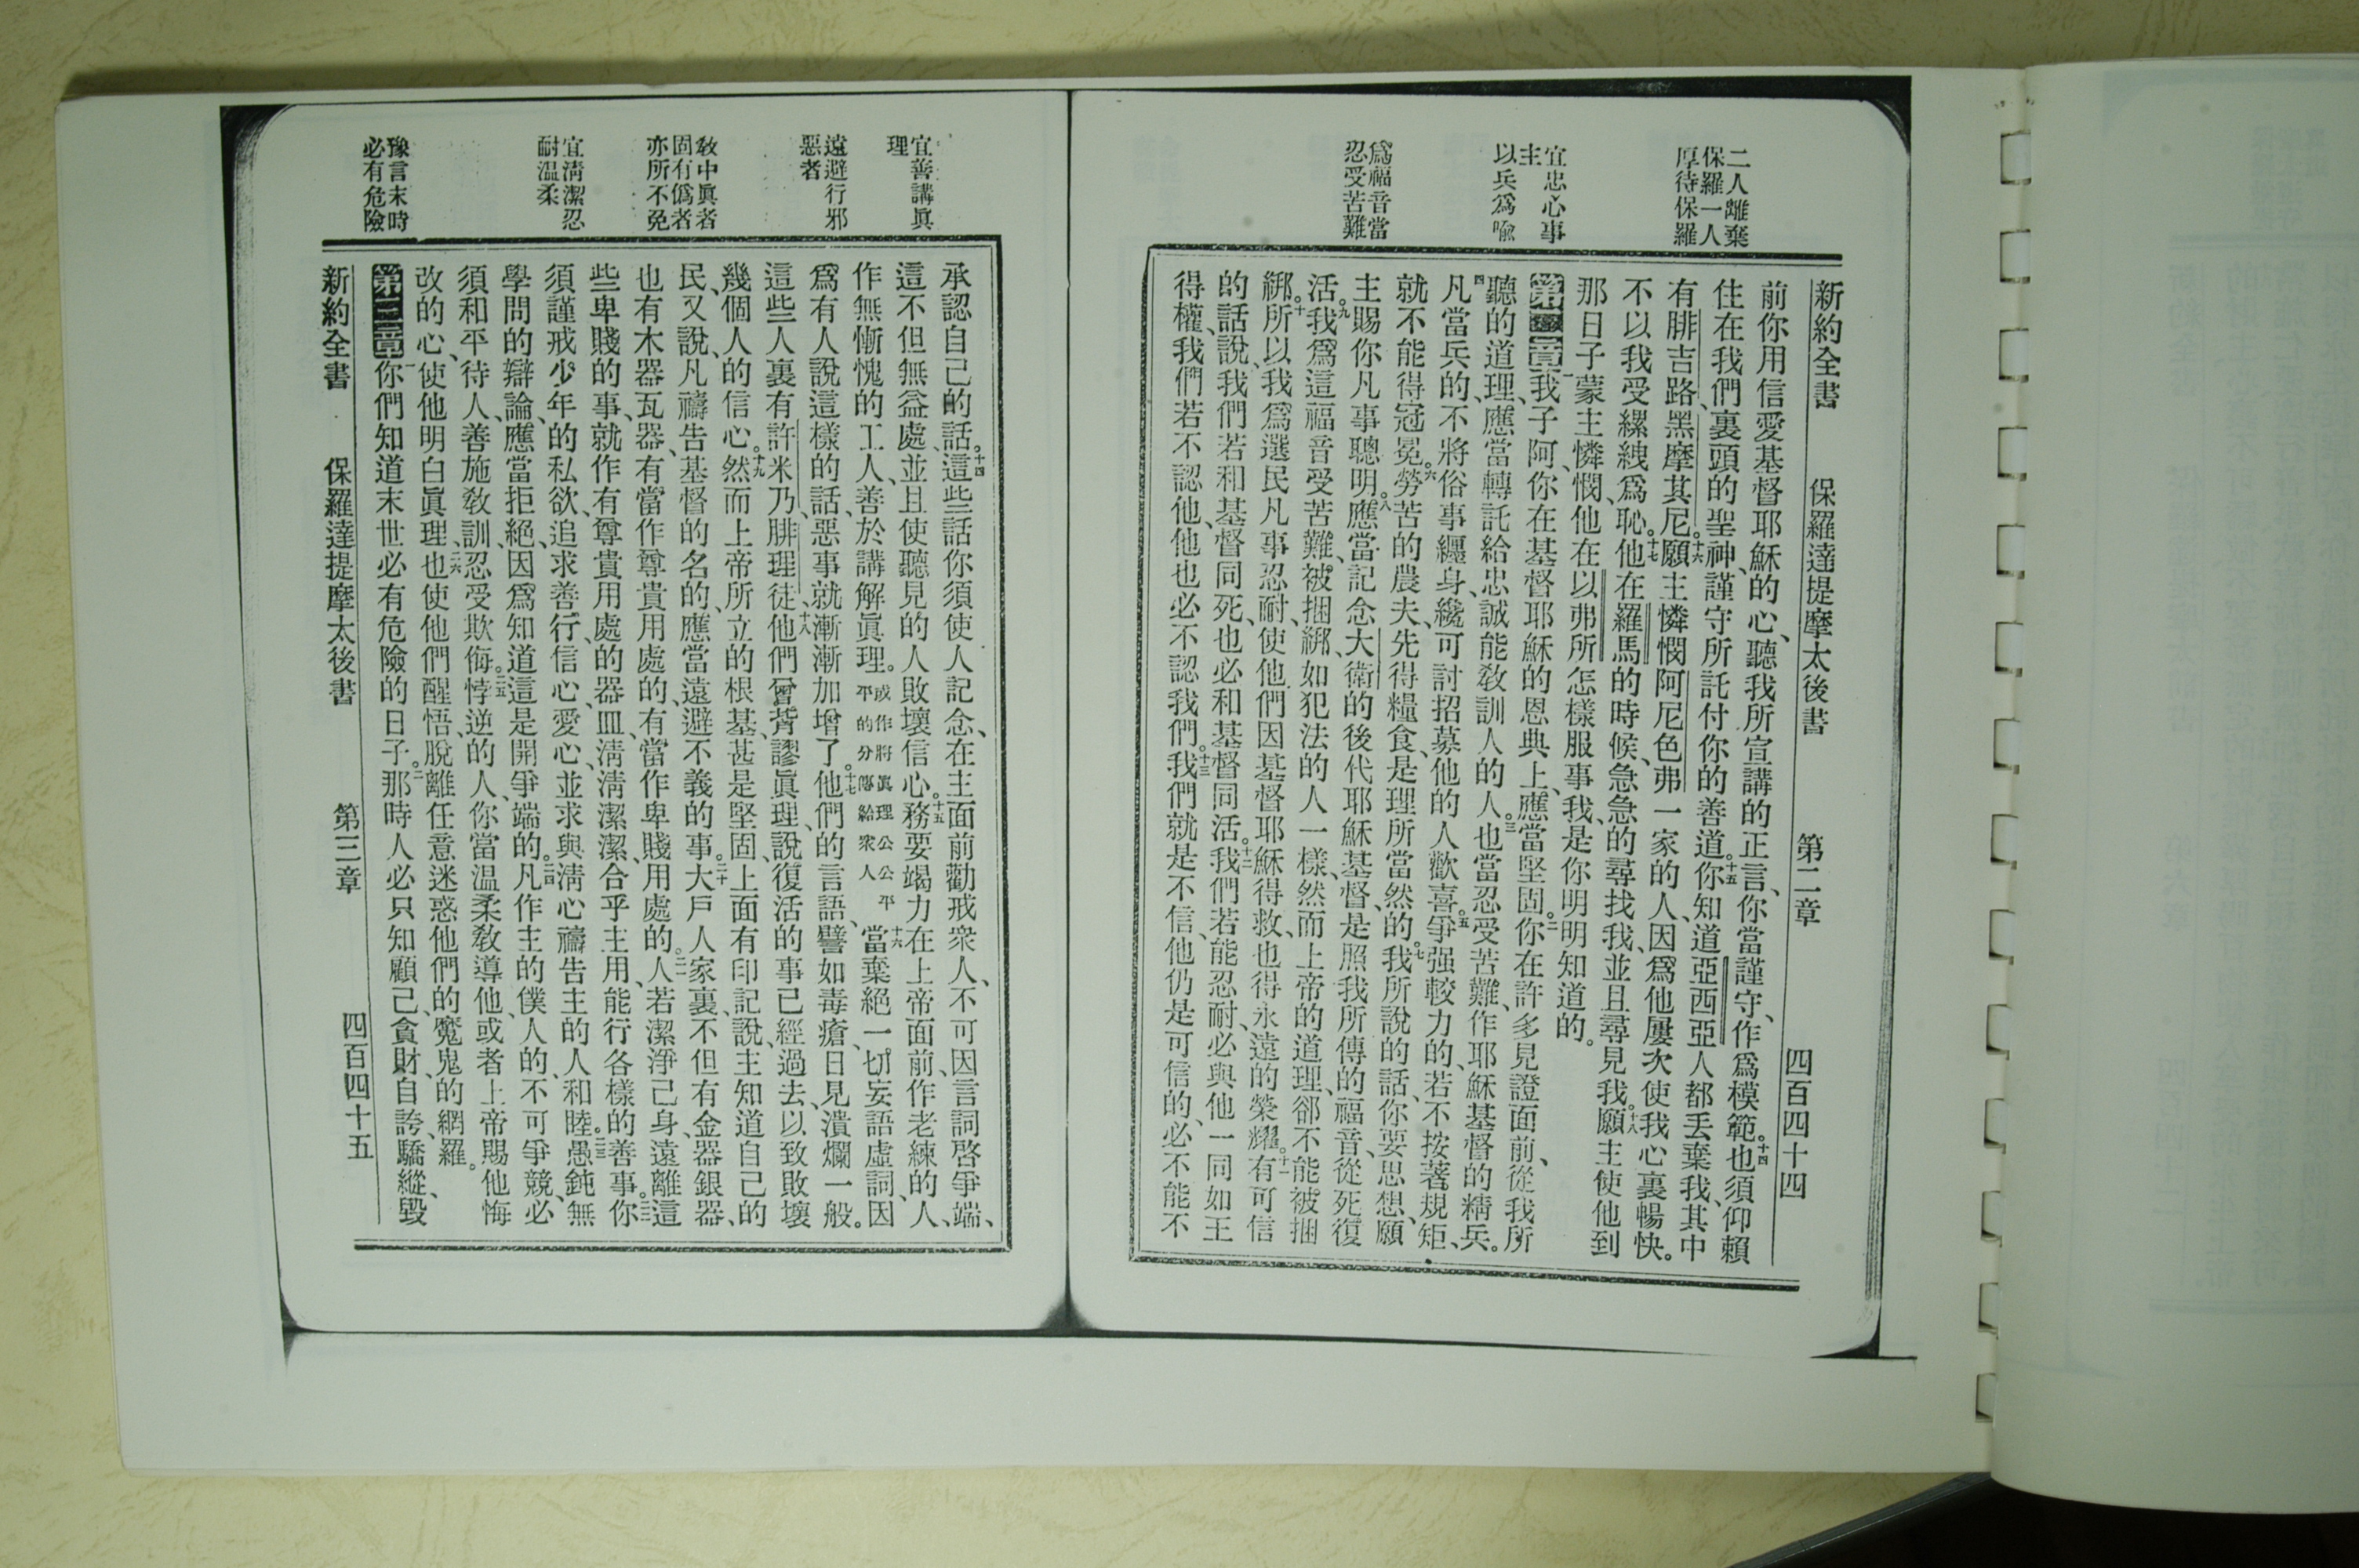 二人離棄
保羅一人
厚待保羅
宜忠心事
主
以兵爲喻
爲福音當
忍受苦難
新約全書 保羅達提摩太後書 第二章 四百四十四
前你用信愛基督耶穌的心、聽我所宣講的正言、你當謹守、作爲模範。十四也須仰賴
住在我們裏頭的聖神、謹守所託付你的善道。十五你知道亞西亞人都丟棄我、其中
有腓吉路、黑摩其尼。十六願主憐憫阿尼色弗一家的人、因爲他屢次使我心裏暢快。
不以我受縲絏爲恥。十七他在羅馬的時候、急急的尋找我、並且尋見我。十八願主使他到
那日子蒙主憐憫、他在以弗所怎樣服事我、是你明明知道的。
第二章一我子阿、你在基督耶穌的恩典上、應當堅固。二你在許多見證面前、從我所
聽的道理、應當轉託給忠誠能敎訓人的人。三也當忍受苦難、作耶穌基督的精兵。
四凡當兵的、不將俗事纏身、纔可討招募他的人歡喜。五爭强較力的、若不按著規矩、
就不能得冠冕。六勞苦的農夫、先得糧食、是理所當然的。七我所說的話、你要思想、願
主賜你凡事聰明。八應當記念大衛的後代耶穌基督、是照我所傳的福音、從死復
活。九我爲這福音受苦難、被捆綁、如犯法的人一樣、然而上帝的道理、卻不能被捆
綁。十所以我爲選民凡事忍耐、使他們因基督耶穌得救、也得永遠的榮耀。十一有可信
的話說、我們若和基督同死、也必和基督同活。十二我們若能忍耐、必與他一同如王
得權、我們若不認他、他也必不認我們。十三我們就是不信、他仍是可信的、必不能不
宜善講眞
理
遠避行邪
惡者
敎中眞者
固有僞者
亦所不免
宜淸潔忍
耐温柔
豫言末時
必有危險
承認自己的話。十四這些話你須使人記念、在主面前勸戒衆人、不可因言詞啓爭端、
這不但無益處、並且使聽見的人敗壞信心。十五務要竭力在上帝面前、作老練的人、
作無慚愧的工人、善於講解眞理。或作將眞理公公平平的分傳給衆人十六當棄絕一切妄語虛詞、因
爲有人說這樣的話、惡事就漸漸加增了。十七他們的言語、譬如毒瘡、日見潰爛一般。
這些人裏有許米乃、腓理徒、十八他們曾背謬眞理、說復活的事已經過去、以致敗壞
幾個人的信心。十九然而上帝所立的根基、甚是堅固、上面有印記說、主知道自己的
民、又說、凡禱告基督的名的、應當遠避不義的事。二十大戶人家裏、不但有金器銀器、
也有木器瓦器、有當作尊貴用處的、有當作卑賤用處的。二一人若潔淨己身、遠離這
些卑賤的事、就作有尊貴用處的器皿、淸淸潔潔、合乎主用、能行各樣的善事。二二你
須謹戒少年的私欲、追求善行、信心、愛心、並求與淸心禱告主的人和睦。二三愚鈍無
學問的辯論、應當拒絕、因爲知道這是開爭端的。二四凡作主的僕人的、不可爭競、必
須和平待人、善施敎訓、忍受欺侮。二五悖逆的人、你當溫柔敎導他、或者上帝賜他悔
改的心、使他明白眞理、二六也使他們醒悟、脫離任意迷惑他們的魔鬼的網羅。
第三章一你們知道末世必有危險的日子。二那時人必只知顧己、貪財、自誇、驕縱、毀
新約全書 保羅達提摩太後書 第三章 四百四十五